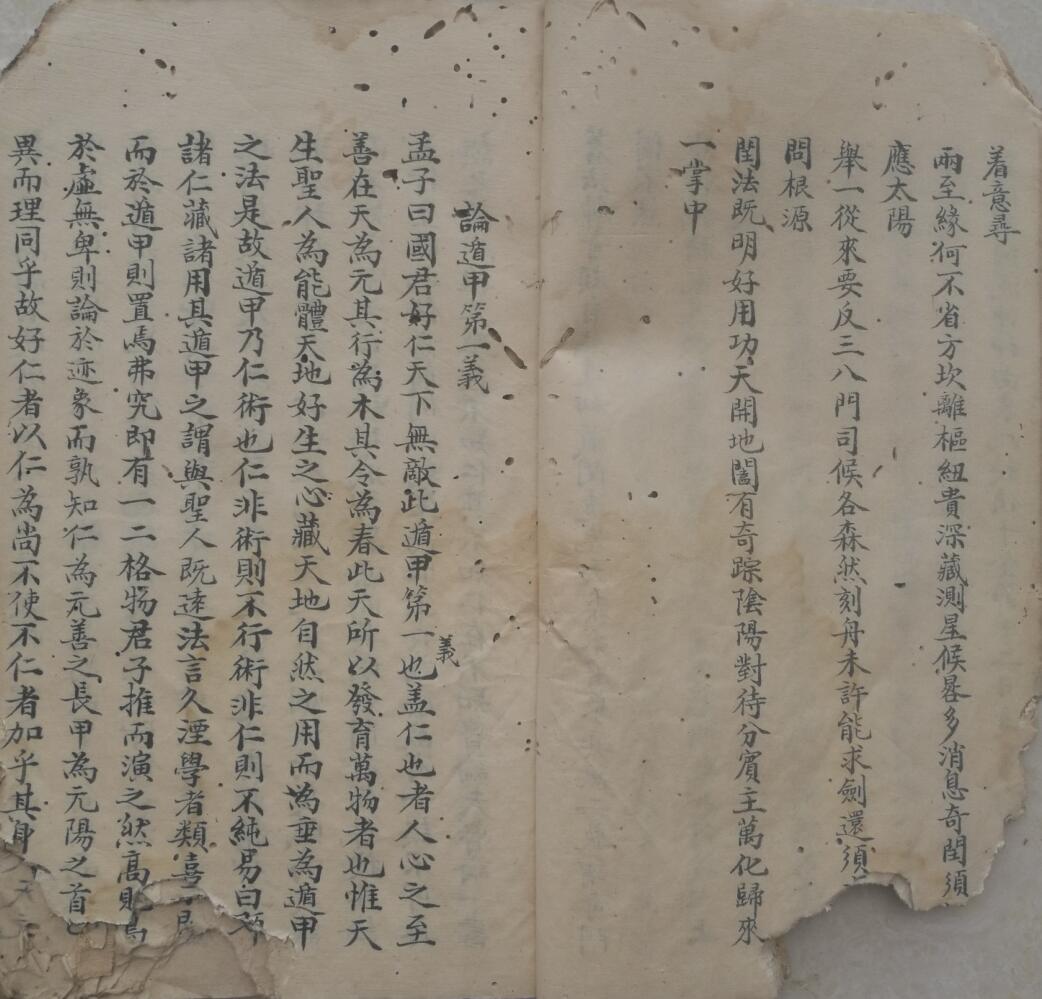 着意尋
兩至緣何不省方坎離樞紐貴深藏測星候晷多消息奇閏須
應太陽
舉一從來要反三八門司候各森然刻舟未許能求劍還須
問根源
閏法既明好用功天開地闔有奇踪陰陽對待分賓主萬化歸來
一掌中
論遁甲第一義
孟子曰國君好仁天下無敵此遁甲第一義也盖仁也者人心之至
善在天為元其行為木其令為春此天所以發育萬物者也惟天
生聖人為能體天地好生之心藏天地自然之用而為垂為遁甲
之法是故遁甲乃仁術也仁非術則不行術非仁則不純易曰
諸仁藏諸用其遁甲之謂與聖人既遠法言久湮學者類喜
而於遁甲則置焉弗究即有一二格物君子推而演之然高則
於虛無卑則論於迹象而孰知仁為元善之長甲為元陽之首
異而理同乎故好仁者以仁為尚不使不仁者加乎其身